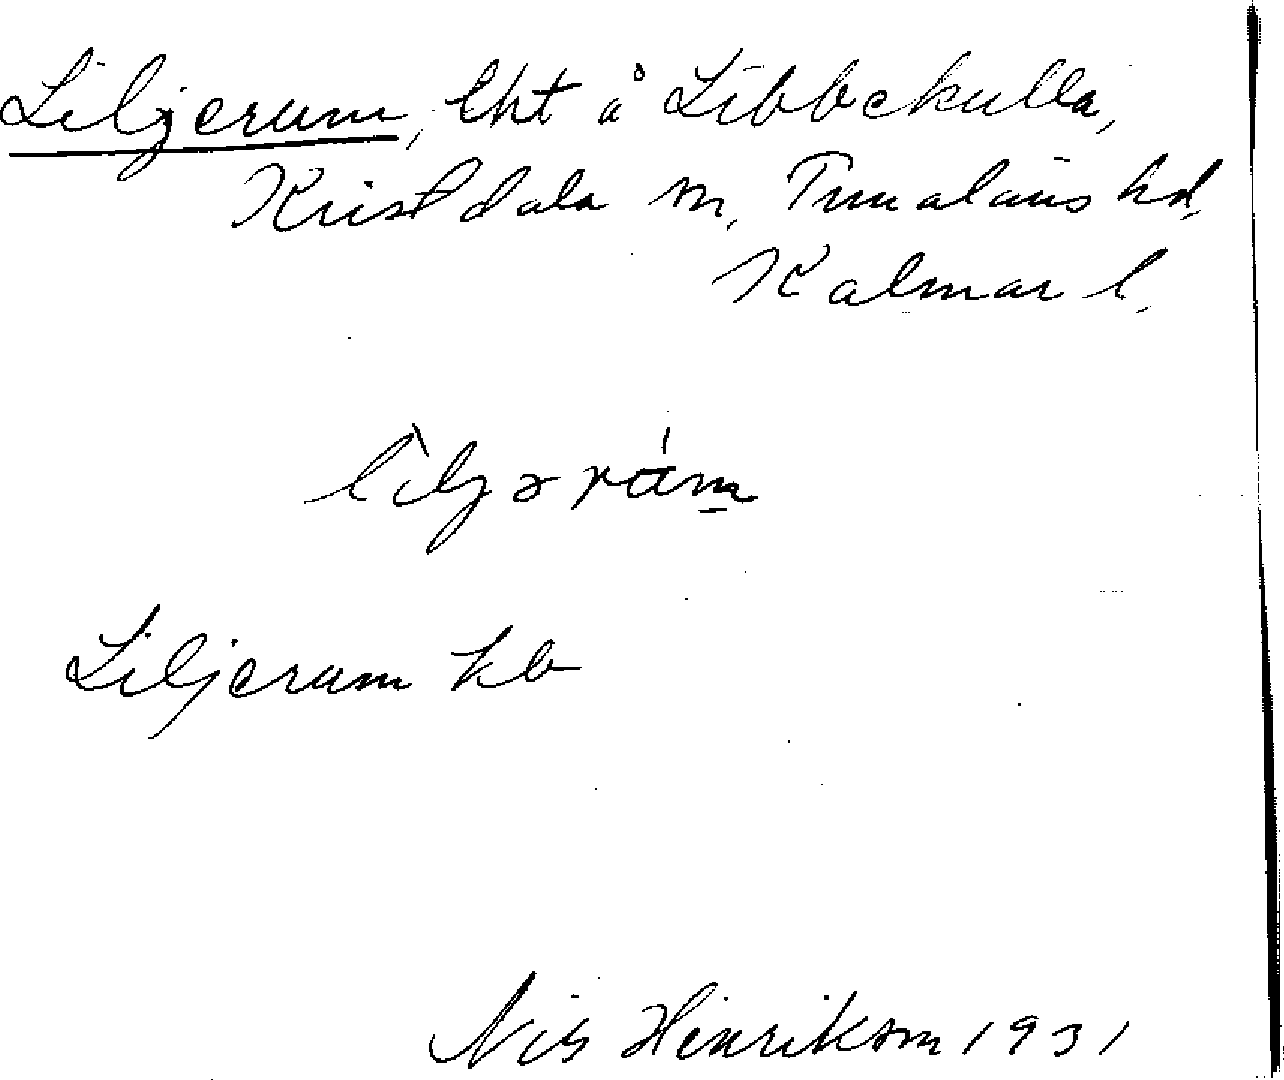 Liljerum, lht å Libbekulla,
Kristdala sn, Tunaläns hd,
Kalmar l.
lìljərám
Liljerum kb
Nils Henrikson 1931